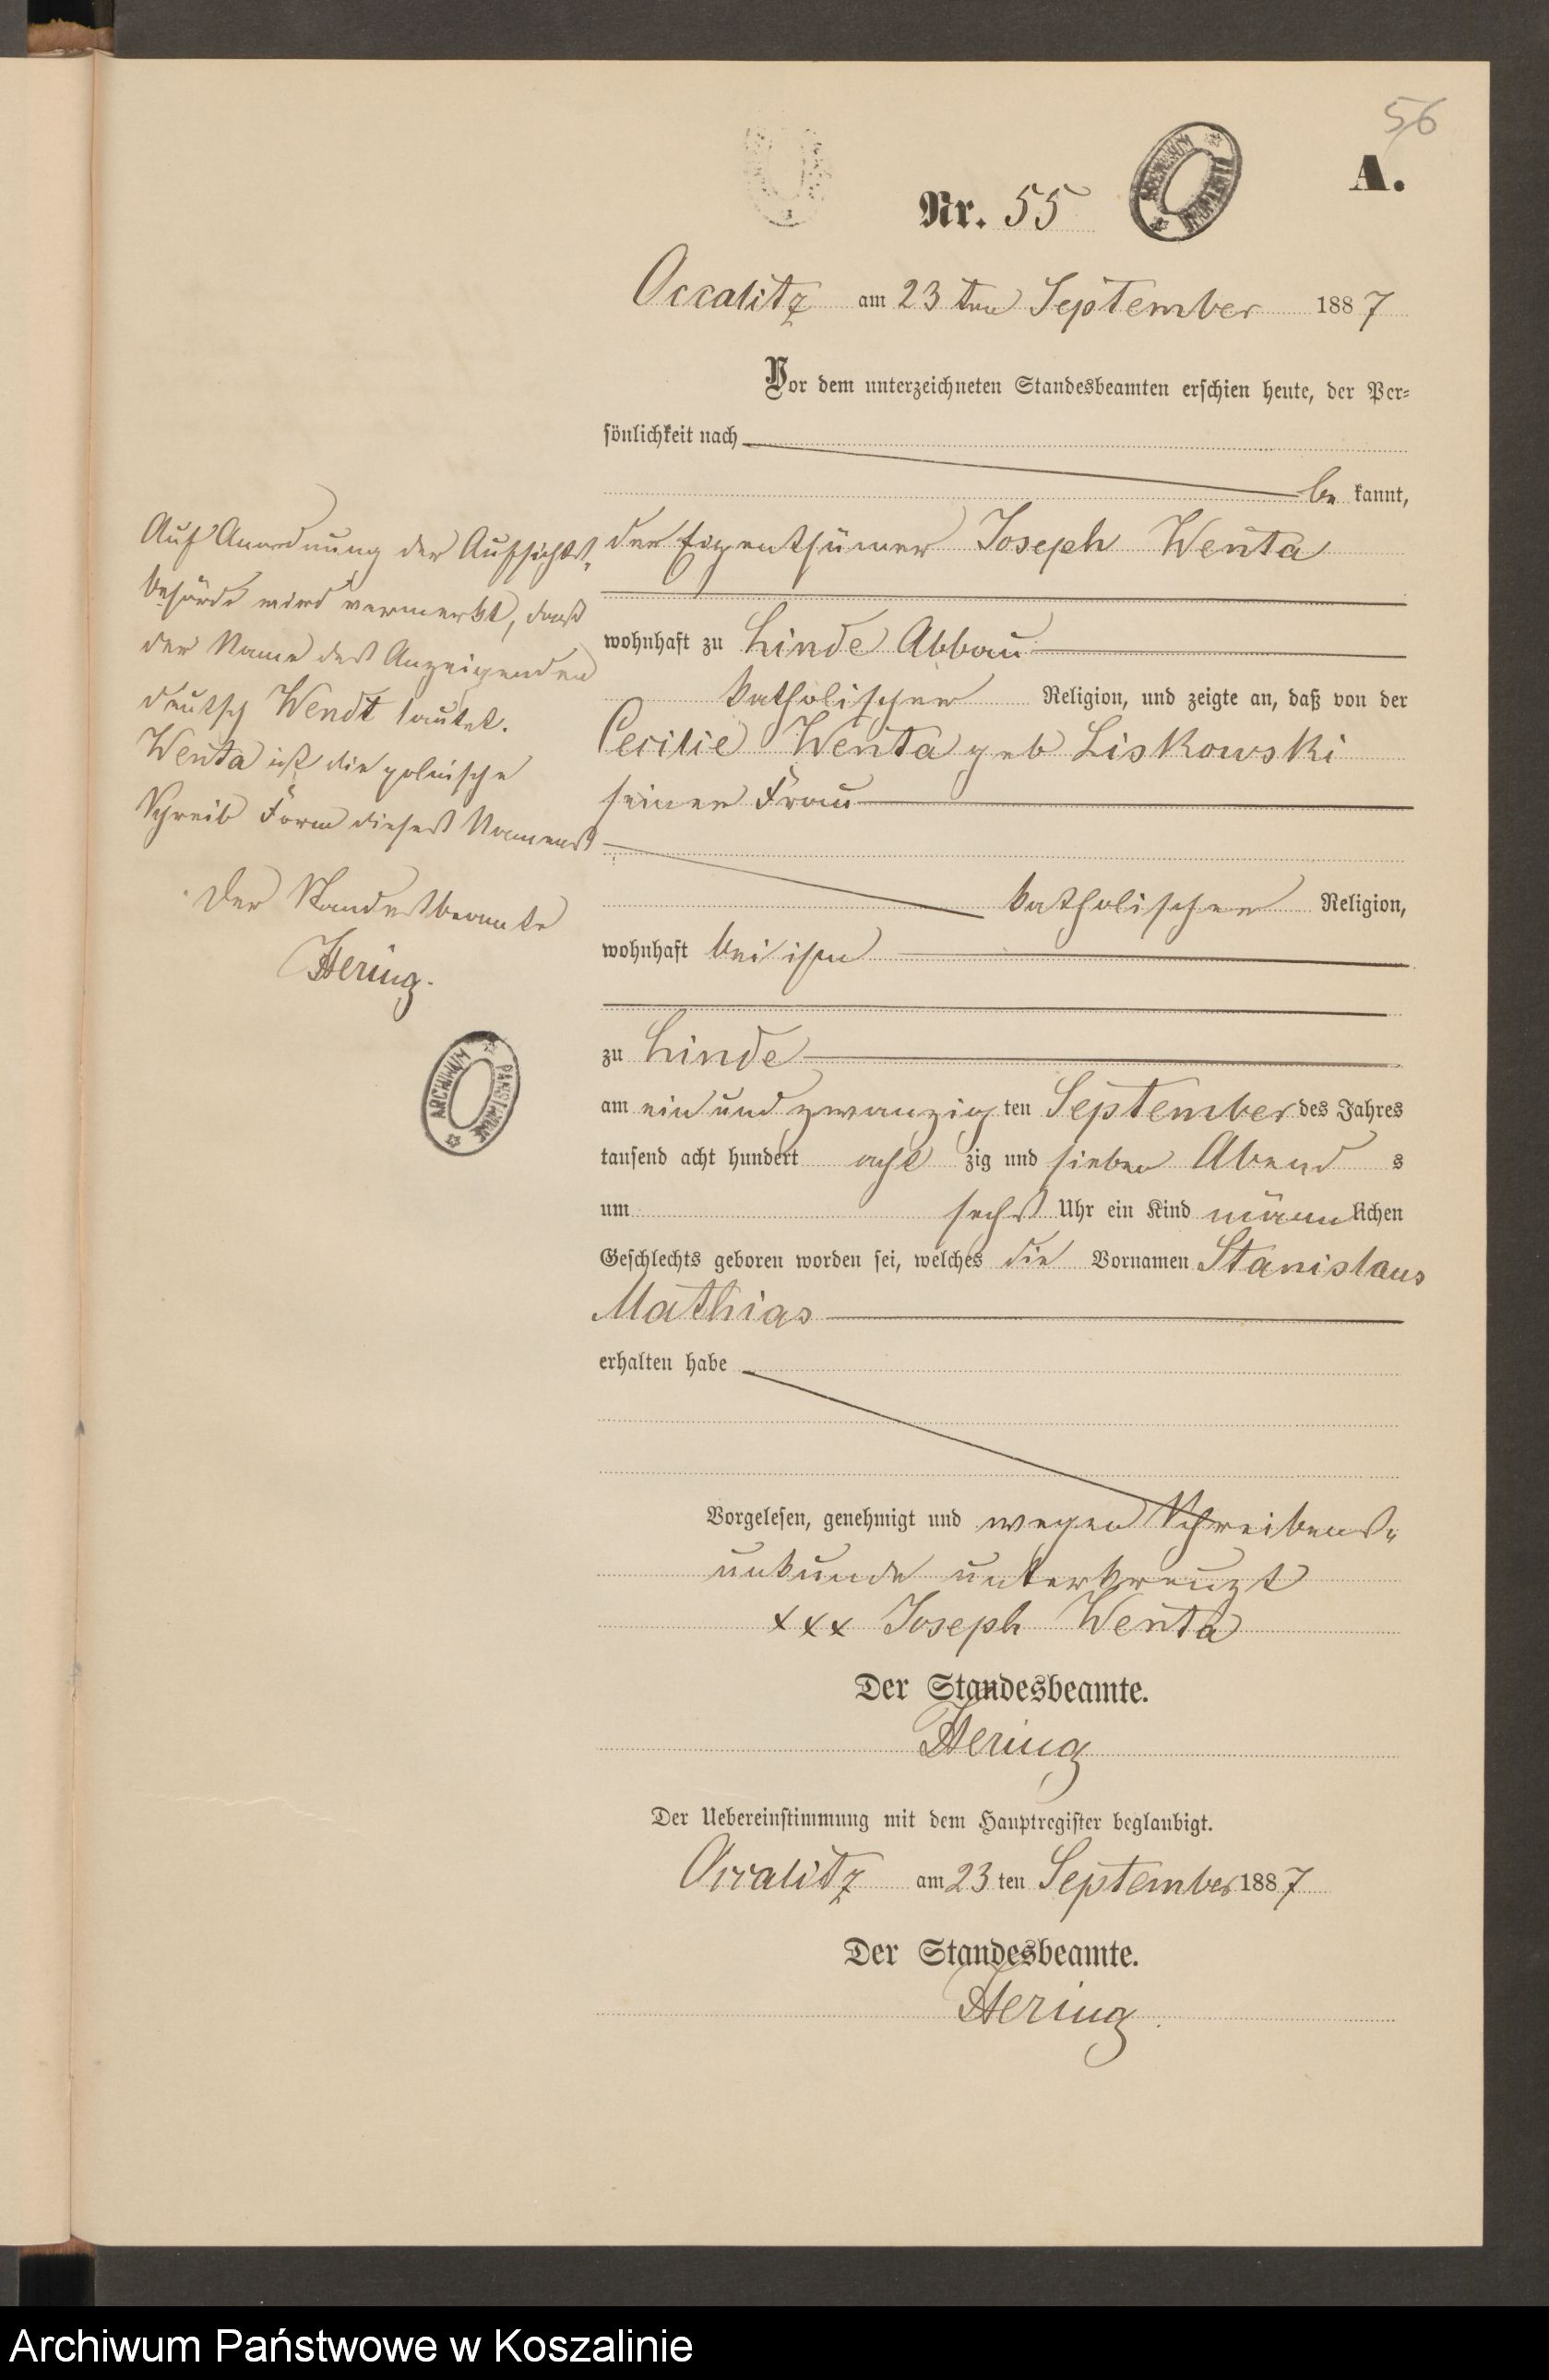 56
A.
Nr. 55
ARCHIWUM PAŃSTWOWE
Occalitz am 23 ten September 1887
Vor dem unterzeichneten Standesbeamten erschien heute, der Per-
sönlichkeit nach
be kannt,
der Eigenthümer Joseph Wenta
wohnhaft zu Linde Abbau
katholischer Religion, und zeigte an, daß von der
Cecilie Wenta geb Liskowski
seiner Frau
katholischer Religion,
wohnhaft bei ihm
zu Linde
am ein und zwanzig ten September des Jahres
tausend acht hundert acht zig und sieben Abend s
um sechs Uhr ein Kind männ lichen
Geschlechts geboren worden sei, welches die Vornamen Stanislaus
Mathias
erhalten habe
Vorgelesen, genehmigt und wegen Schreibens-
unkunde unterkreuzt
xxx Joseph Wenta
Der Standesbeamte.
Hering
Der Uebereinstimmung mit dem Hauptregister beglaubigt.
Occalitz am 23 ten September 1887
Der Standesbeamte.
Hering.
Auf Anordnung der Aufsichts-
behörde wird vermerkt, dass
der Name des Anzeigenden
deutsch Wendt lautet.
Wenta ist die polnische
Schreib Form dieses Namens
Der Standesbeamte
Hering.
ARCHIWUM PAŃSTWOWE
Archiwum Państwowe w Koszalinie